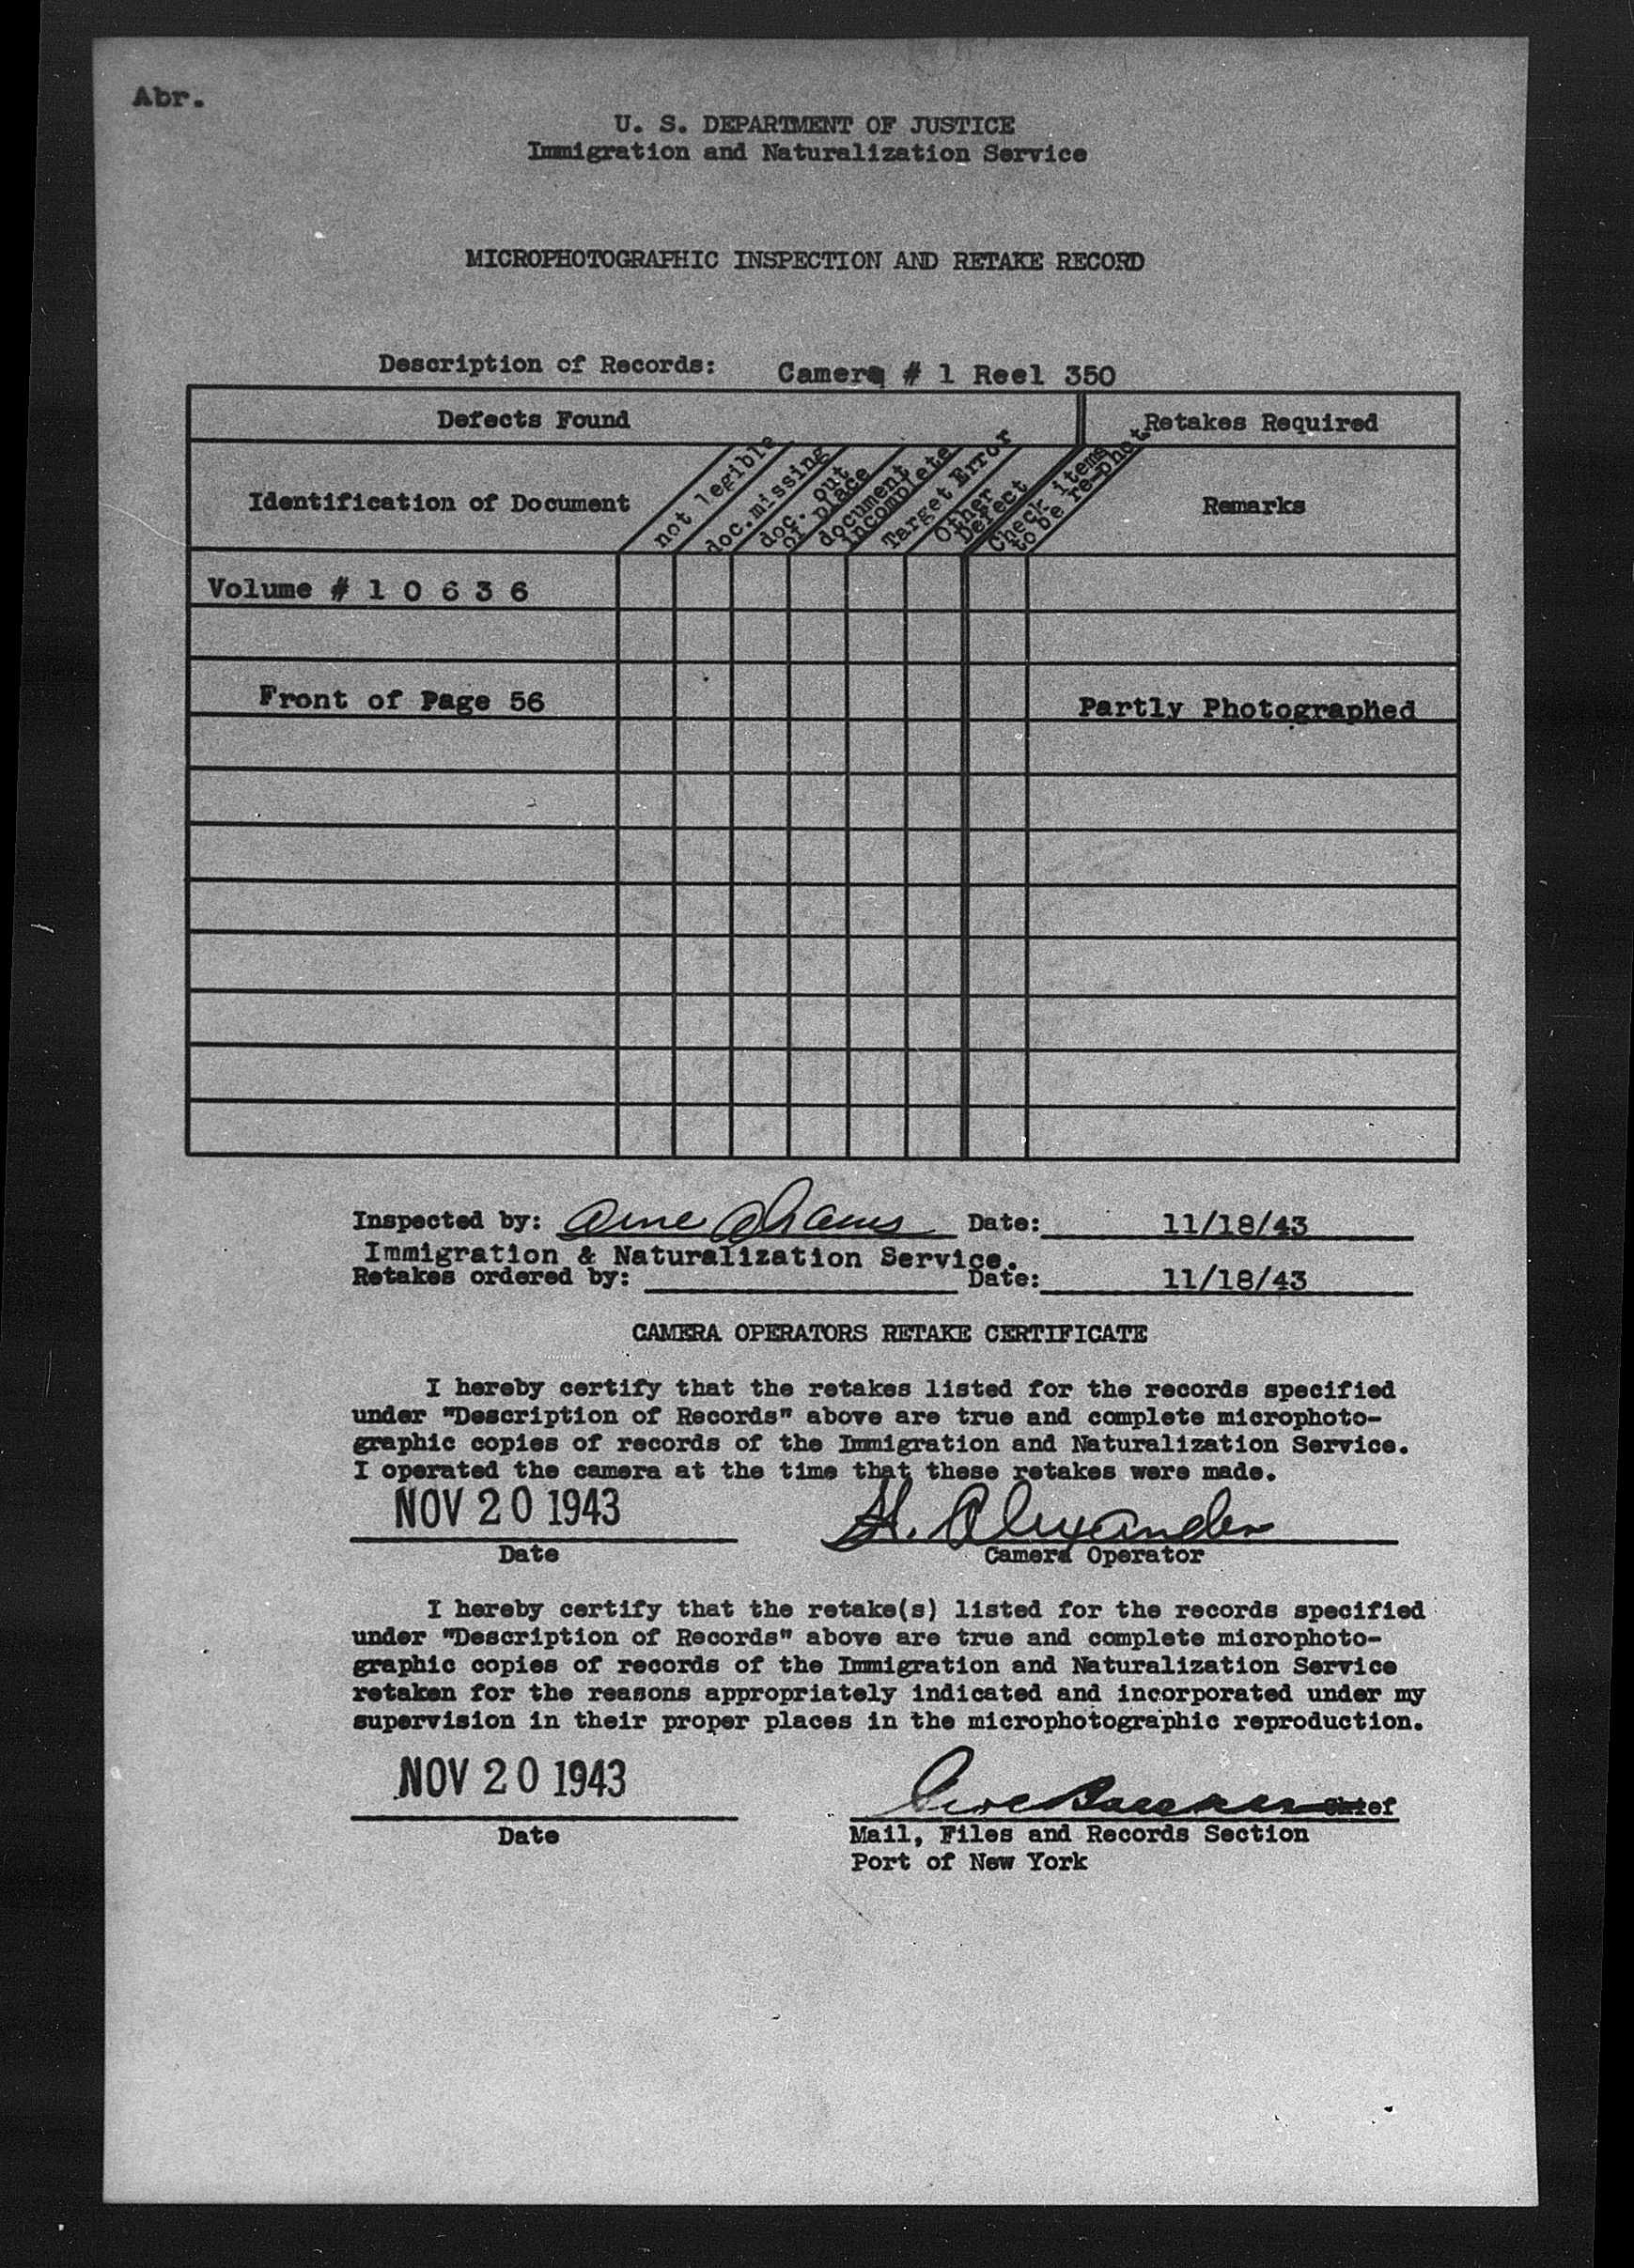 Abr.
U. S. DEPARTMENT OF JUSTICE
Immigration and Naturalization Service
MICROPHOTOGRAPHIC INSPECTION AND RETAKE RECORD
Description of Records: Camera # 1 Reel 350
Defects Found
Retakes Required
Identification of Document
not legible
doc. missing
doc. out
of place
document
incomplete
Target Error
Other
Defect
Check items
to be re-phot
Remarks
Volume # 1 0 6 3 6
Front of Page 56 Partly Photographed
Inspected by: Date: 11/18/43
Immigration & Naturalization Service.
Retakes ordered by: Date: 11/18/43
CAMERA OPERATORS RETAKE CERTIFICATE
I hereby certify that the retakes listed for the records specified
under "Description of Records" above are true and complete microphoto-
graphic copies of records of the Immigration and Naturalization Service.
I operated the camera at the time that these retakes were made.
NOV 20 1943 H. Alexander
Date Camera Operator
I hereby certify that the retake(s) listed for the records specified
under "Description of Records" above are true and complete microphoto-
graphic copies of records of the Immigration and Naturalization Service
retaken for the reasons appropriately indicated and incorporated under my
supervision in their proper places in the microphotographic reproduction.
NOV 20 1943 Chief
Date Mail, Files and Records Section
Port of New York